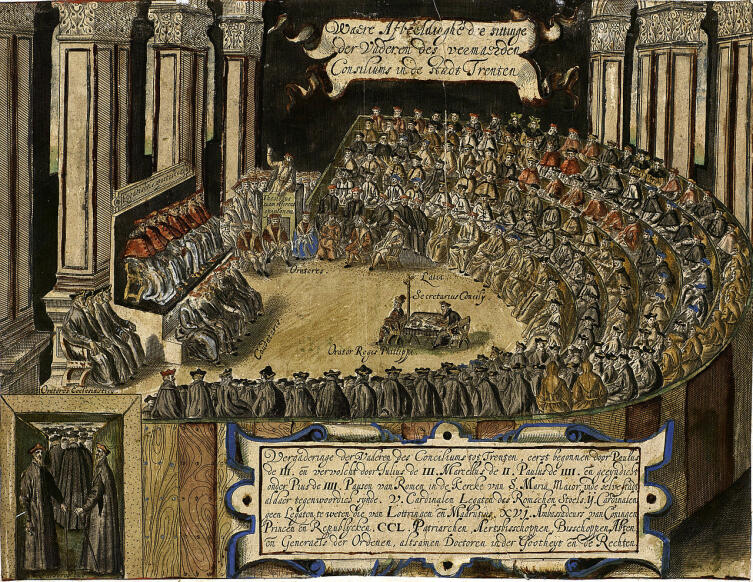 Waere Afbeeldinghe d'e sittinge
der Vaderen des vermaerden
Consiliums inde stadt Trenten
Oratores.
Laici
Secretarius Concily
Orator Regis Philippi.
Vergaderinge der Vaderen des Conciliums tot Trenten, eerst begonnen door Paulus
de III. en vervolcht door Julius de III. Marcellus de II. Paulus de IIII. en geeyndicht
onder Pius de IIII. Paysen van Romen in de Kercke van S. Maria Maior inde selve stadt
aldaer tegenwoordich synde. V. Cardinalen Legaten des Romschen Stoels, ij Cardinalen
geen Legaten te weten die van Lottringen en Madrutius, XVI. Ambassadeurs van Coningen
Princen en Republycken, CCL. Patriarchen, Aertsbisschoppen, Bisschoppen, Abten
en Generaels der Ordenen, altsamen Doctoren inder Gootheyt en de Rechten